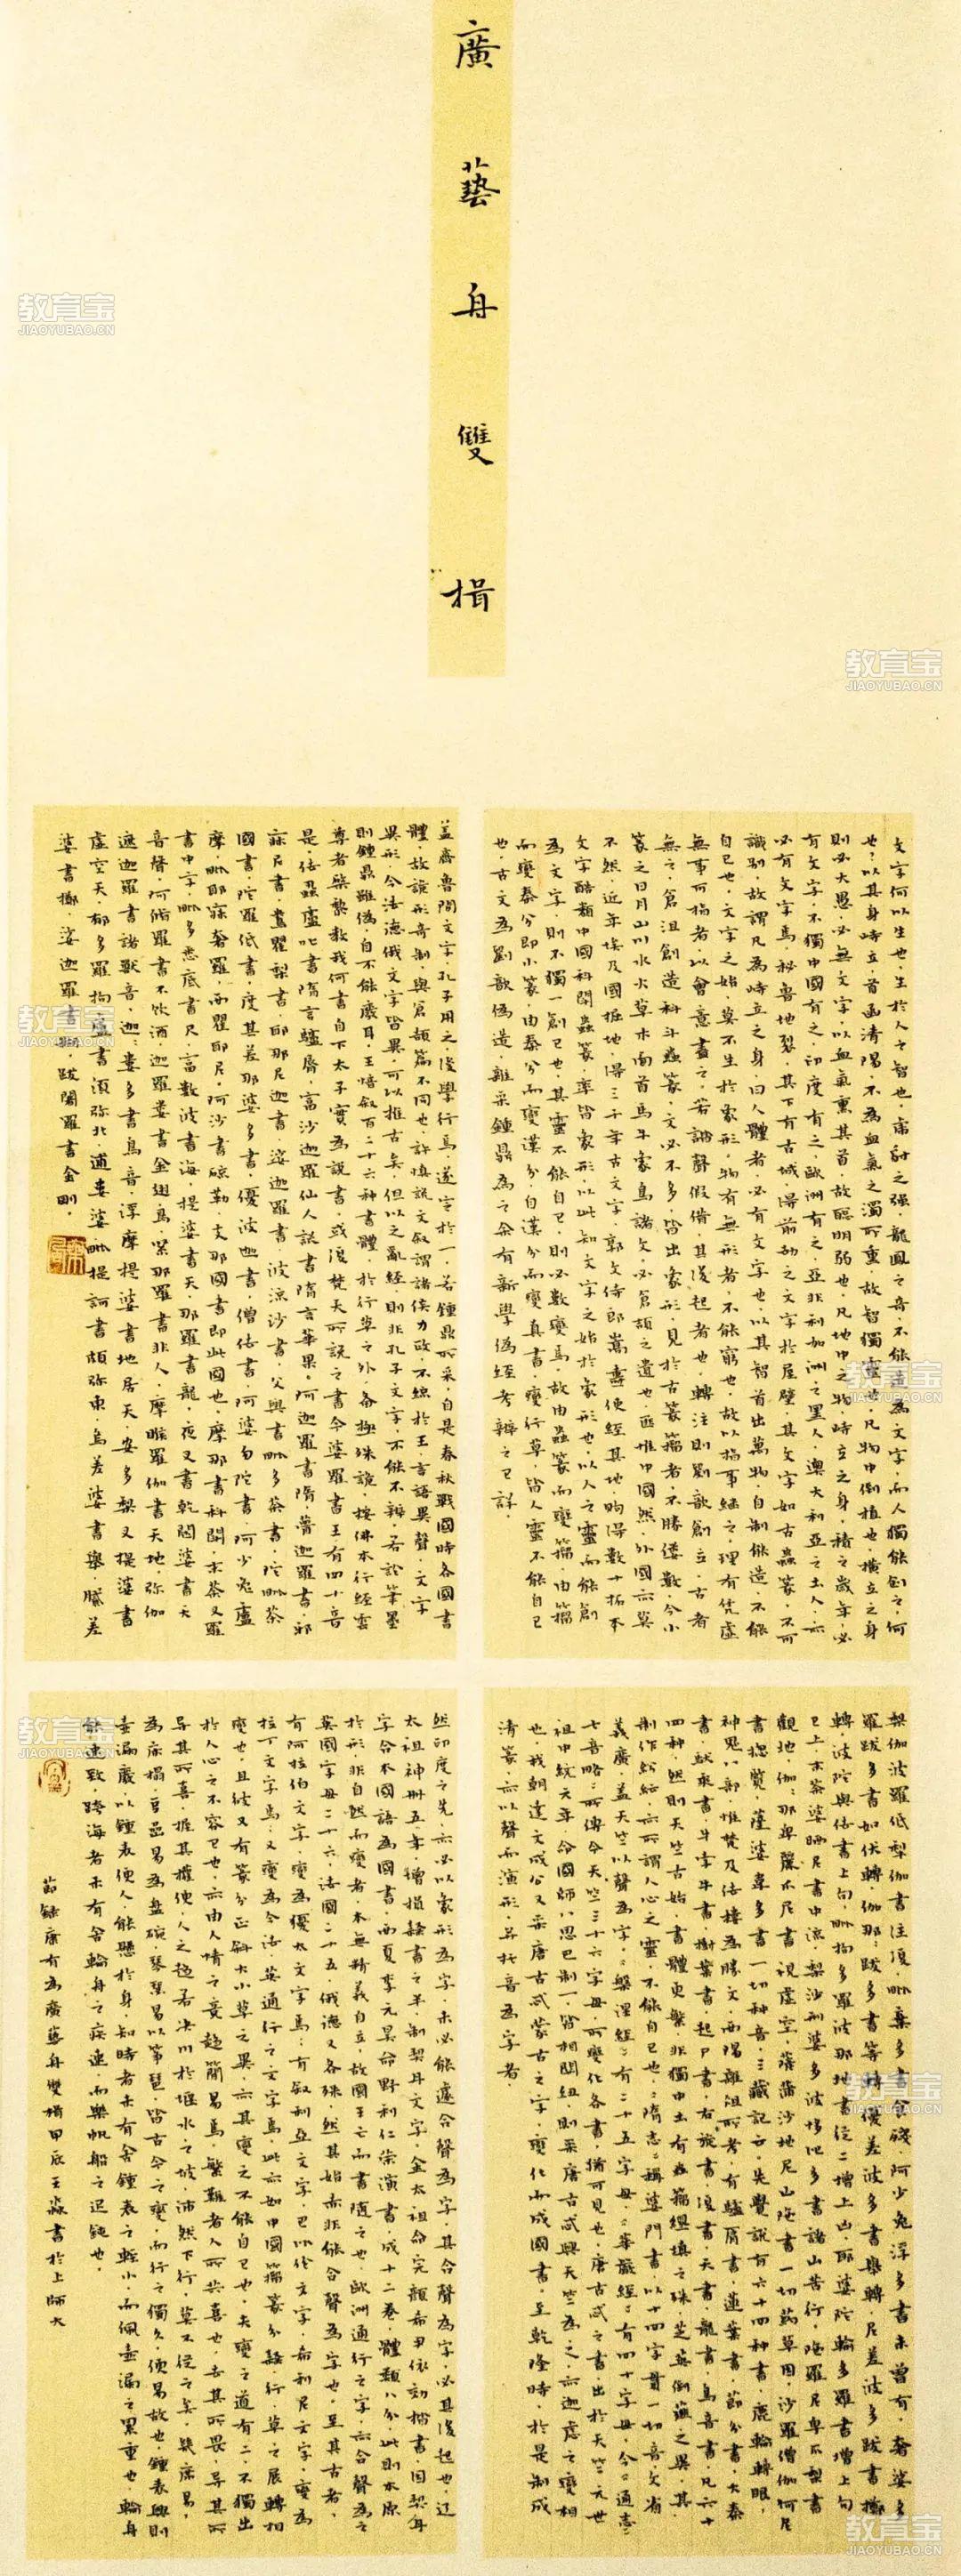 廣藝舟雙揖
文字何以生也,生於人之智也,虎豹之强,龍鳳之奇,不能造為文字,而人獨能創之,何
也,以其身峙立,首函清陽,不為血氣之濁所熏,故智獨靈也,凡物中倒植也,橫立之身
則必大愚,必無文字,以血氣熏其首,故聰明弱也,凡地中之物,峙立之身,積之歲年,必
有文字,不獨中國有之,印度有之,歐洲有之,亞非利加洲之黑人,澳大利亞之土人,亦
必有文字焉,秘魯地裂,其下有古城,得前劫之文字於屋壁,其文字如古蟲篆,不可
識別,故謂凡為峙立之身曰人體者,必有文字也,以其智首出萬物,自制能造,不能
自已也,文字之始,莫不生於象形,物有無形者,不能窮也,故以指事繼之,理有凭虛
無事可指者,以會意盡之,若諧聲假借,其後起者也,轉注則劉歆創立,古者
無之,倉沮創造科斗蟲篆,文必不多,皆出象形,見於古篆籀者,不勝僂數,今小
篆之日月山川水火草木面首馬牛象鳥諸文,必倉頡之遺也,匪惟中國然,外國亦莫
不然,近年埃及國掘地,得三千年古文字,郭文侍郎嵩燾使經其地,購得數十拓本
文字酷類中國科閗蟲篆,率皆象形,以此知文字之始於象形也,以人之靈而能創
為文字,則不獨一創已也,其靈不能自已,則必數變焉,故由蟲篆而變籀,由籀
而變秦分即小篆,由秦分而變漢分,自漢分而變真書,變行草,皆人靈不能自已
也,古文為劉歆偽造,雜采鍾鼎為之余有新學偽經考辨之已詳,
蓋齊魯間文字孔子用之後學行焉,遂定於一,若鍾鼎所采,自是春秋戰國時各國書
體,故詭形奇制,與倉頡篇不同也,許慎說文叙謂諸侯力政,不統於王,言語異聲,文字
異形,今法德俄文字皆異,可以推古矣,但以之亂經,則非孔子文字,不能不辨,若論筆墨
則鍾鼎雖偽,自不能廢耳,王愔叙百二十六種書體,於行草之外,各極殊詭,按佛本行經雲
尊者槃黎教我何書自下太子實為說書,或復梵天所說之書今婆羅書王有四十音
是,佉盧虱吒書隋言驢唇,富沙迦羅仙人說書隋言華果,阿迦羅書隋
國書,陀羅低書,度其差那婆多書,優波迦書,僧佉書,阿婆勿陀書,阿少兔盧
摩,
書中字,
音聲,阿脩羅書不飲酒迦羅婁書金翅鳥,緊那羅書非人,摩睺羅伽書天地,彌伽
遮迦羅書諸獸音,迦婁多書鳥音,浮摩提婆書地居天,安多梨叉提婆書
虛空天,鬱多羅拘盧書須弥北,逋婁婆毗提訶書須弥東,烏差婆書舉,膩差
婆書擲,娑迦羅書,跋闍羅書金剛,
梨伽波羅低梨伽書注復,毗棄多書食殘,阿少兔浮多書未曾有,奢婆多
羅跋多書如伏轉,伽那那跋多書等轉,優差波多書舉轉,尼差波多跋書擲
轉,波陀與佉書上句,毗拘多羅波那地書從二增上凶,耶婆陀輸多羅書增上句
已上,末荼婆哂尼書中流,梨沙邪婆多波恀比多書諸山苦行,陁羅尼卑叉梨書
觀地,伽伽那卑麗叉尼書視虛空,薩蒲沙地尼山陁書一切葯草因,沙羅僧伽何尼
書惣覽,薩婆韋多書一切種音,三藏記云,先覺說有六十四種書,鹿輪轉眼,
神鬼八部,惟梵及佉樓為勝文,
書,
四種,然則天竺古始,書體更繁,非獨中土有
制作紛紛,亦所謂人心之靈,不能自已也,隋志稱婆門書,以十四字貫一切音文省
義廣,蓋天竺以聲為字,槃涅經有二十五字母,華嚴經有四十字母,今通志
七音略所傳今天竺三十六字母,所變化各書,猶可見也,唐古忒之書出於天竺,元世
祖中統元年,命國師八思巴制一,皆相閗紐,則采唐古忒與天竺為之,亦迦盧之變相
也,我朝達文成公又采唐古忒蒙古之字,變化而成國書,至乾隆時,於是制成
清篆,亦以聲而演形,并托音為字者,
然印度之先,亦必以象形為字,未必能遽合聲為字,其合聲為字,必其後起也,遼
太祖神冊五年,增損隸書之半,制契丹文字,金太祖命完顏希尹依仿楷書,因契丹
字合本國語為國書,西夏李元昊命野利仁榮演書,成十二卷,體類八分,此則本原
於形,非自然而變者,本無精義自立,故國王亡而書隨之也,歐洲通行之字,亦合聲為之
英國字母二十六,法國二十五,俄德又各殊,然其始亦非能合聲為字也,至其古者,
有阿拉伯文字,變為猶太文字焉,有叙利亞文字,巴比倫文字,希利尼文字,變為
拉丁文字焉,又變為今法英通行之文字焉,此亦如中國籀篆分隸,行草之展轉相
變也,且彼又有篆分正斜大小草之異,亦其變之不能自已也,夫變之道有二,不獨出
於人心之不容已也,亦由人情之竟趨簡易焉,繁難者人所共喜也,去其所畏,導其所
為床榻,豆登易為盘碗,琴瑟易以筝琶,皆古今之變,而行之獨久,便易故也,鍾表興則
壶漏廢,以鍾表便人,能懸於身,知時者未有舍鍾表之輕小,而佩壶漏之累重也,輪舟
能速致,跨海者未有舍輪舟之疾速,而樂帆船之迟鈍也,
節錄康有為廣藝舟雙揖甲辰王淼書於上師大
教育宝
JIAOYUBAO.CN
教育宝
JIAOYUBAO.CN
教育宝
JIAOYUBAO.CN
教育宝
JIAOYUBAO.CN
教育宝
JIAOYUBAO.CN
教育宝
JIAOYUBAO.CN
教育宝
JIAOYUBAO.CN